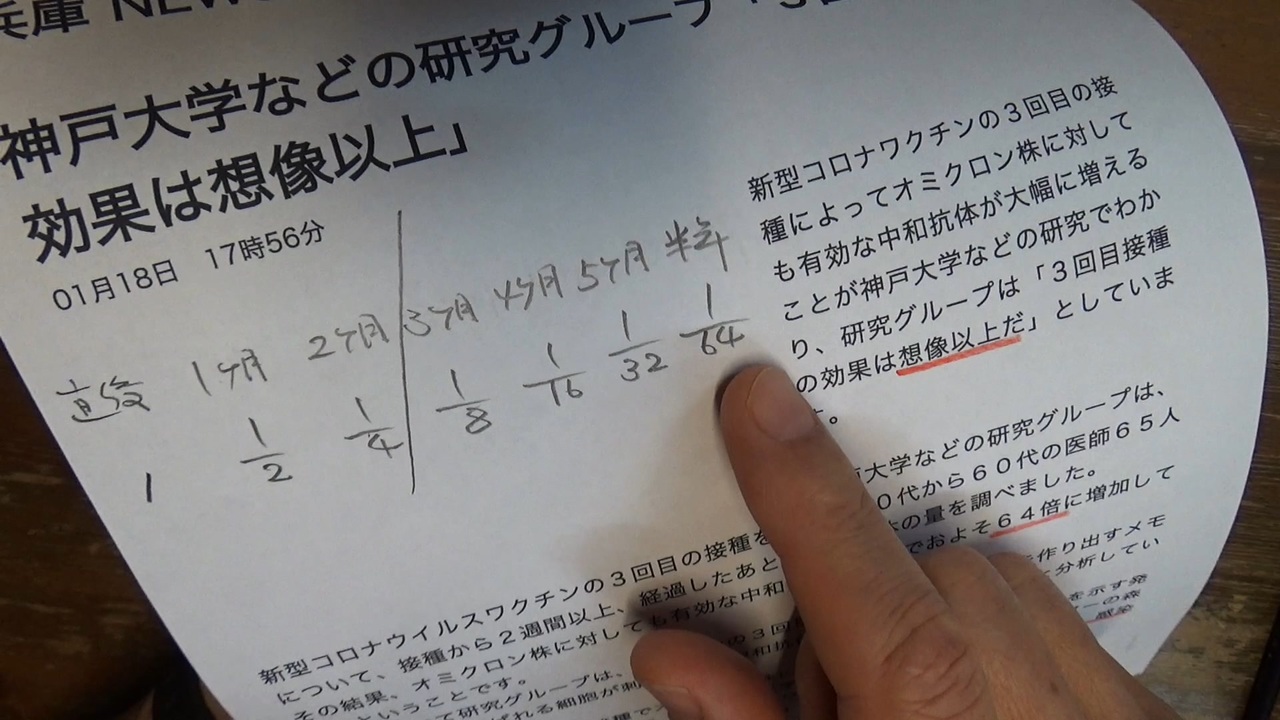 兵庫 NEW
神戸大学などの研究グループ「3回
効果は想像以上」
01月18日 17時56分
直後 1ヶ月 2ヶ月 3ヶ月 4ヶ月 5ヶ月 半年
1 1/2 1/4 1/8 1/16 1/32 1/64
新型コロナワクチンの３回目の接
種によってオミクロン株に対して
も有効な中和抗体が大幅に増える
ことが神戸大学などの研究でわか
り、研究グループは「３回目接種
の効果は想像以上だ」としていま
す。
新型コロナウイルスワクチンの３回目の接種を
大学などの研究グループは、
０代から６０代の医師６５人
について、接種から２週間以上、経過したあと
の量を調べました。
その結果、オミクロン株に対しても有効な中和
でおよそ６４倍に増加して
ということです。
て研究グループは、
の３回
作り出すメモ
分析してい
を示す発
ーの森
感染